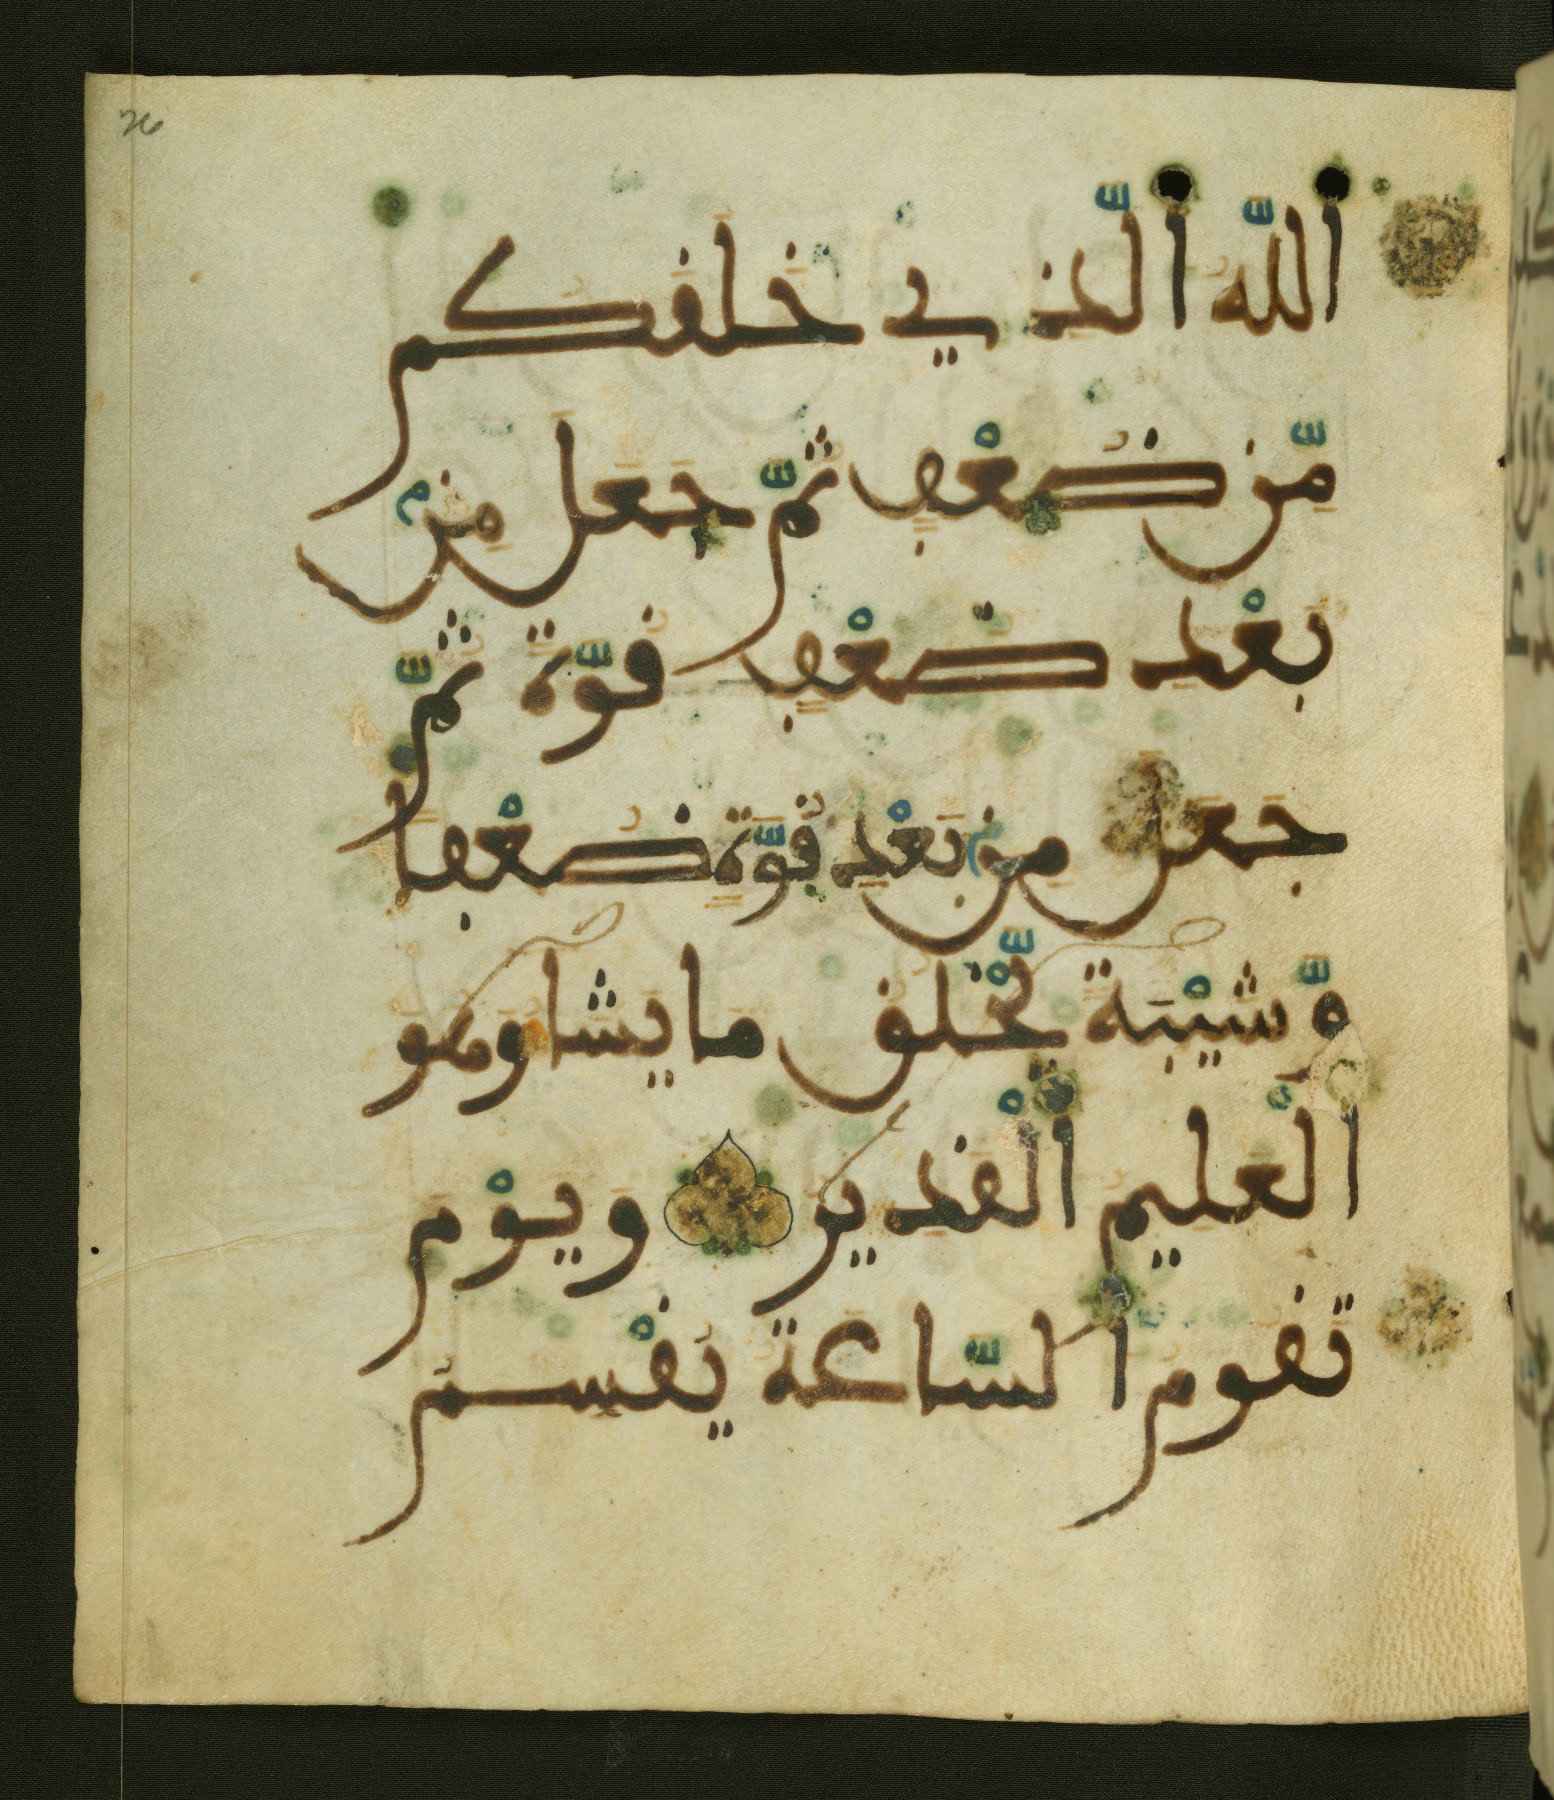 26
اللَّهُ الَّذِي خَلَقَكُم
مِّن ضُعْفٍ ثُمَّ جَعَلَ مِنۢ
بَعْدِ ضُعْفٍ قُوَّةً ثُمَّ
جَعَلَ مِنۢ بَعْدِ قُوَّةٍ ضُعْفًا
وَّشَيْبَةً يَّخْلُقُ مَا يَشَا وَهُوَ
الْعَلِيمُ الْقَدِيرُ وَيَوْمَ
تَقُومُ السَّاعَةُ يُقْسِمُ